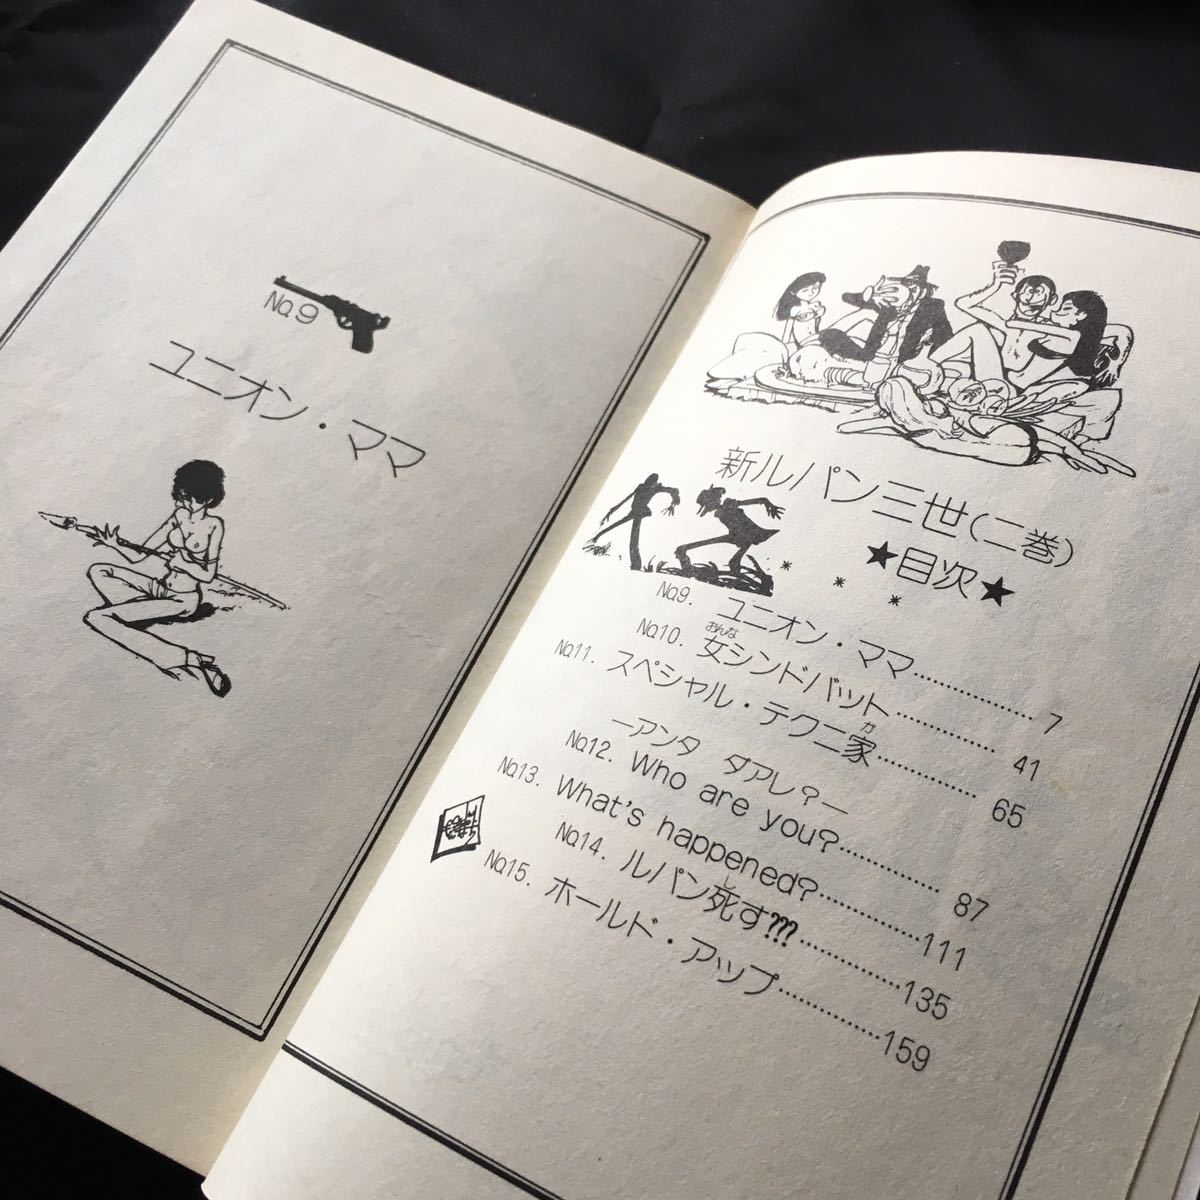 No.9
ユニオン・ママ
新ルパン三世(二巻)
★目次★
No.9. ユニオン・ママ………………7
No.10. 女シンドバット………………41
おんな
No.11. スペシャル・テクニ家………………65
か
―アンタ ダアレ?―
No.12. Who are you?………………87
No.13. What's happened?………………111
No.14. ルパン死す???………………135
し
No.15. ホールド・アップ………………159